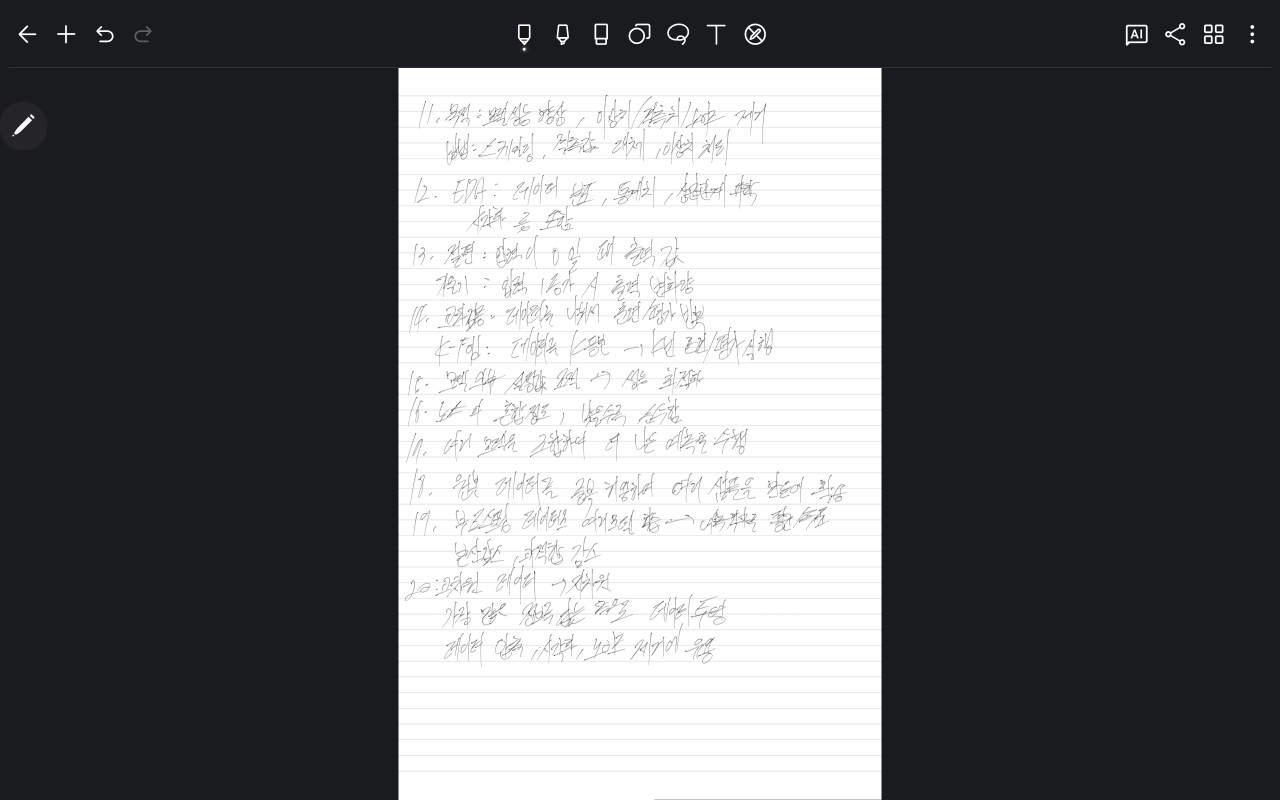 AI
T
11. 목적 : 모델성능 향상, 이상치/결측치/노이즈 제거
방법 : 스케일링, 결측값 대체, 이상치 처리
12. EDA : 데이터 분포, 통계치, 상관관계 파악
시각화 등 포함
13. 절편 : 입력이 0일 때 출력 값
기울기 : 입력 1증가 시 출력 변화량
14. 교차검증 - 데이터를 나눠서 훈련/평가 반복
K-Fold : 데이터를 K등분 → K번 훈련/평가 실행
15. 모델 외부 설정값 조절 → 성능 최적화
16. 노드의 혼합정도, 낮을수록 순수함
17. 여러 모델을 조합하여 더 나은 예측을 수행
18. 원본 데이터를 중복 허용하여 여러 샘플을 만들어 학습
19. 부트스트랩 데이터로 여러모델 학습 →
분산감소, 과적합 감소
20 : 고차원 데이터 → 저차원
가장 많은 정보를 갖는 축으로 데이터 투영
데이터 압축, 시각화, 노이즈 제거에 유용